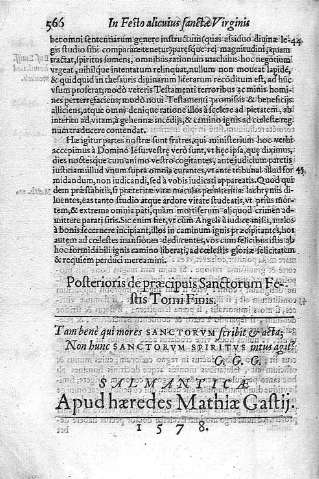 566 In Festo alicuius sanctæ Virginis
ber omni sententiarum genere instructus, quasi assiduo diuinæ le-
gis studio sibi comparare tenetur, pares que rei magnitudini, quam
tractat, spiritus sumens, omnibus rationum machinis hoc negotium
vrgeat, nihilque intentatum relinquat, nullum non moueat lapidē,
& quidquid in thesauris diuinarum literarum reconditum est, ad huc
vsum proferat, modò veteris Testamenti terroribus ac minis homi-
nes perterrefaciens, modò noui Testamenti promissis & beneficijs
alliciens, atque omni denique ratione illos à scelere ad pietatem, ab
interitu ad vitam, à gehennæ incēdijs, & cælestis regni
traducere contendat.
Hæ igitur partes nostræ sunt fratres, qui ministerium hoc
accepimus à Domino Iesu: vestræ verò sunt, vt hęc ipsa, quæ diximus,
dies noctesque cum animo vestro cogitantes, ante iudicium paretis
iustitiam
mandando, non iudicandi, sed à vobis iudicij appareatis. Quod
dem præstabitis, si præteritæ vitæ maculas pœnitentiæ lachrymis di-
luentes, eas tanto studio atque ardore vitate studeatis, vt prius mor-
tem, & extrema omnia pati, quàm mortiferum aliquod crimen ad-
mittere paratis. Sic enim fiet, vt cùm Angeli à iudice missi, malos
à bonis secernere incipiant, illos in caminum ignis præcipitantes, hos
autem ad cælestes mansiones deducentes, vos cum fælicibus istis ab
hoc formidabili ignis camino liberati, ad cælestis gloriæ fælicitatem
& requiem perduci mereamini.
Posterioris de præcipuis Sanctorum Fe-
stis Tomi Finis.
Tam benè qui mores SANCTORVM scribit & acta;
Non hunc SANCTORVM SPIRITVS intus agit?
G. G. G.
SALMANTICÆ
Apud hæredes Mathiæ Gastij.
1578.